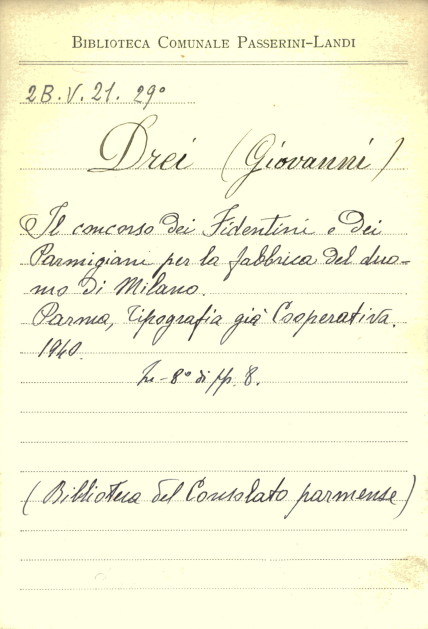 BIBLIOTECA COMUNALE PASSERINI-LANDI
2B.V.21.29°
Drei (Giovanni)
Il concorso dei Fidentini e dei
Parmigiani per la fabbrica del duo-
mo di Milano.
Parma, Tipografia già Cooperativa.
1940.
In-8° di pp. 8.
(Biblioteca del Consolato parmense)